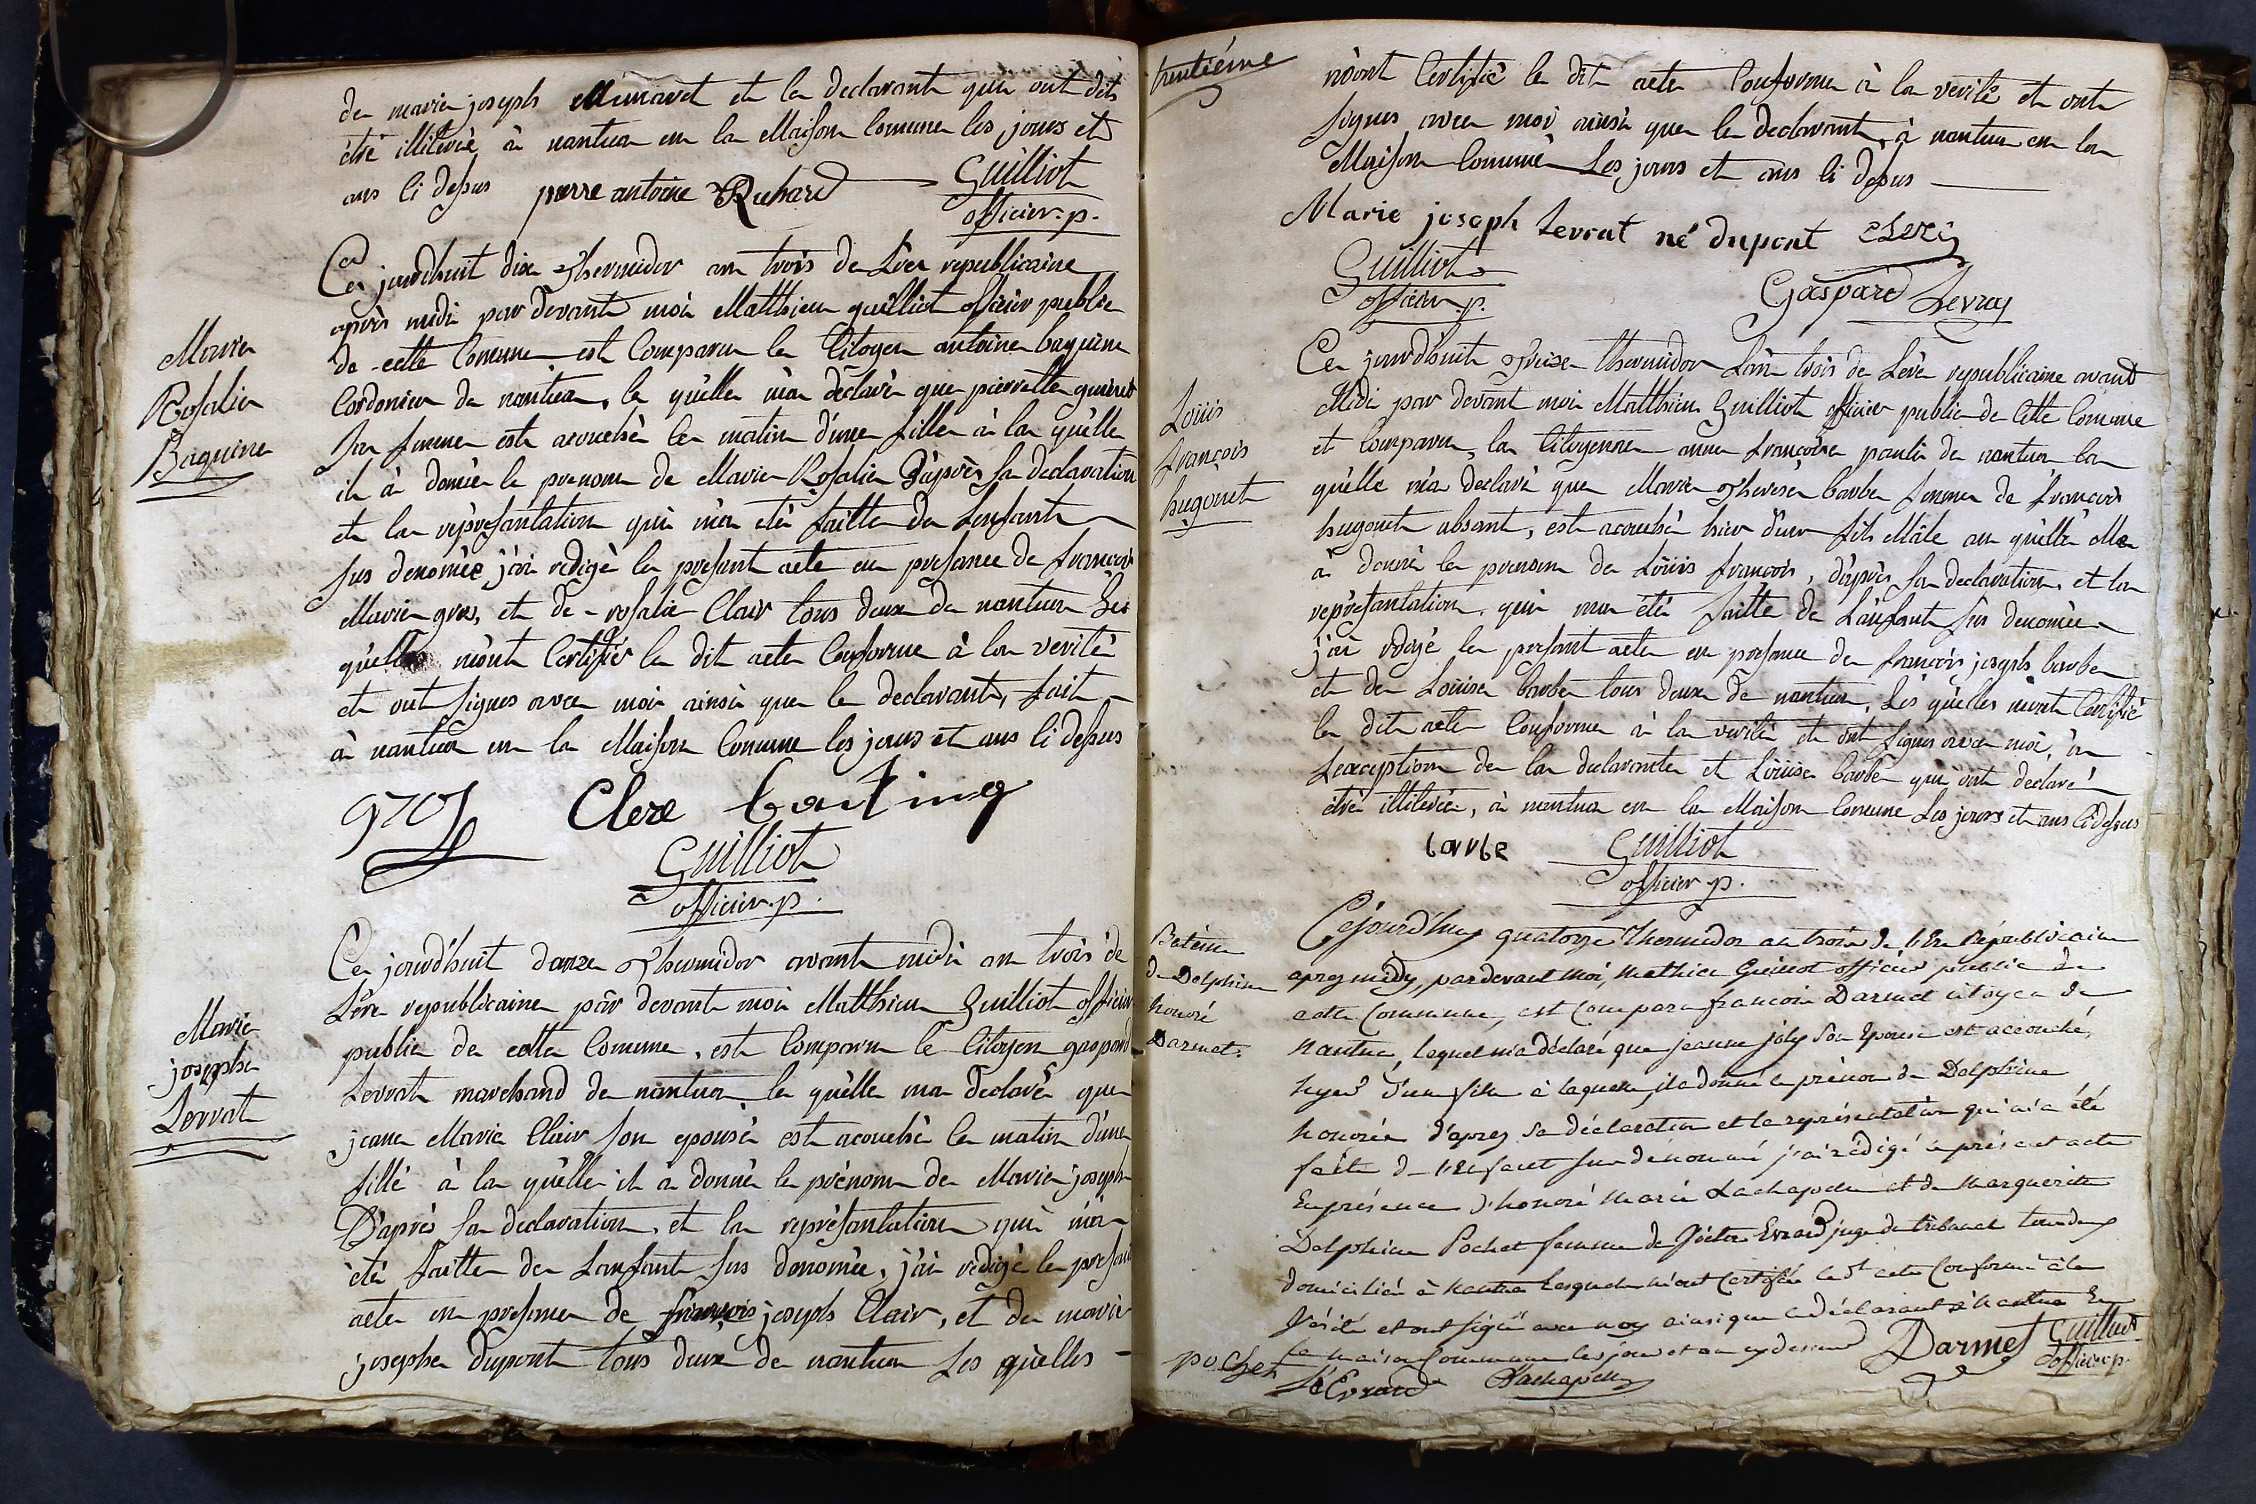 de marie joseph Munavet et le declarant que ont dits
étré illiterée à nantua en la Maison Comune les jours et
ans Ci dessus pierre antoine Richard Guilliot
officier.p.
Marie
Rosalie
Baquine
Ce jourdhuit dix Thermidor an trois de Lére republicaine
après midi par devant moi Matthieu guilliot officier public
de cette Comune est Comparu le Citoyen antoine baquine
Cordonier de nantua, le quélle m'a déclaré que pierrette
sa femme est acouchée le matin d'une fille à la quélle
il à donnée le prenom de Marie Rosalie D'après sa declaration
et la représantation qui m'a été faitte de Lenfant
sus denomée j'ai redigé le présant acte en présance de françois
Marie gros, et de rosalie Clair tous deux de nantua Les
quélles m'ont Certifiés le dit acte Conforme à la verité
et ont signes avec moi ainsi que le declarant, fait
à nantua en la Maison Comune les jours et ans Ci dessus
gros Clere
Guilliot
officier.p.
Marie
josephe
Levrat
Ce jourdhuit douze Thermidor avant midi an trois de
Lére republicaine pár devant moi Matthieu Guilliot officier
public de cette Comune, est Comparu le Citoyen gaspard
Levrat marchand de nantua le quélle m'a declaré que
jeane Marie Clair son epouse est acouchée le matin d'une
fille à la quélle il à donnée le prénom de Marie joseph
D'après sa declaration, et la représantation qui m'a
été faitte de Lanfant sus denomée, j'ai redigé le présant
acte en présance de françois joseph Clair, et de marie
josephe dupont tous deux de nantua Les quélles
trentiéme
m'ont Certifié le dit acte Conforme à la verité et ont
signes avec moi ainsi que le declarant, à nantua en la
Maison Comune Les jours et ans Ci dessus
Marie joseph Levrat né dupont Clerc
Guilliot
officier.p.
Gaspard Levrat
Loüis
françois
hugonet
Ce jourdhuit Treize thermidor L'an trois de Lére republicaine avant
Midi par devant moi Matthieu Guilliot officier public de Cette Comune
et Comparu, la Citoyenne anne françoise de nantua la
quélle m'a declaré que Marie Therese barbe femme de françois
hugonet absant, est acouchée hier d'un fils Mâle au quélle Elle
à donné le prenom de Loüis françois, d'après sa declaration, et la
représantation, qui m'a été faitte de Lanfant sus denomée
j'ai rédigé le présant acte en présance de françois joseph barbe
et de Loüise barbe tous deux de nantua, Les quélles m'ont Certifié
le dit acte Conforme à la verité et ont signes avec moi, à
Lexception de la declarante et Loüise barbe qui ont declaré
étré illiterée, à nantua en la Maison Comune Les jours et ans Ci dessus
barbe Guilliot
officier p.
Batéme
de Delphine
honoré
Darmet.
Cejourd'huy quatorze Thermidor an trois de l'Ere Républicaine
apres midy, pardevant moi, Mathieu Guilliot officier public de
cette Commune, est Comparu francois Darmet citoyen de
Nantua, lequel m'a déclaré que jeanne joly son Epouse est accouché
hyer d'une fille à laquelle, il a donné le prénom de Delphine
honorée d'apres sa déclaration et la représentation qui m'a été
faite de l'Enfant sus dénommé j'ai rédigé le présent acte
En présence d'honoré Marie Lachapelle et de Marguerite
Delphine Pochet femme de Evrard juge du tribunal tous deux
domiciliés à Nantua Lesquels m'ont Certifié le dt acte Conforme à la
Vérité et ont signé avec moy ainsi que le déclarant à Nantua En
la maison Commune les jour et an cy dessus Darmet Guilliot
officier p.
pochet fe Evrard Lachapelle